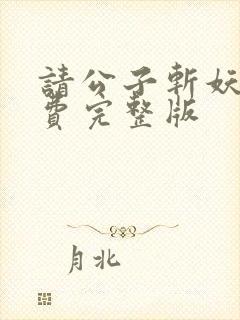 請公子斬妖
費完整版
月北